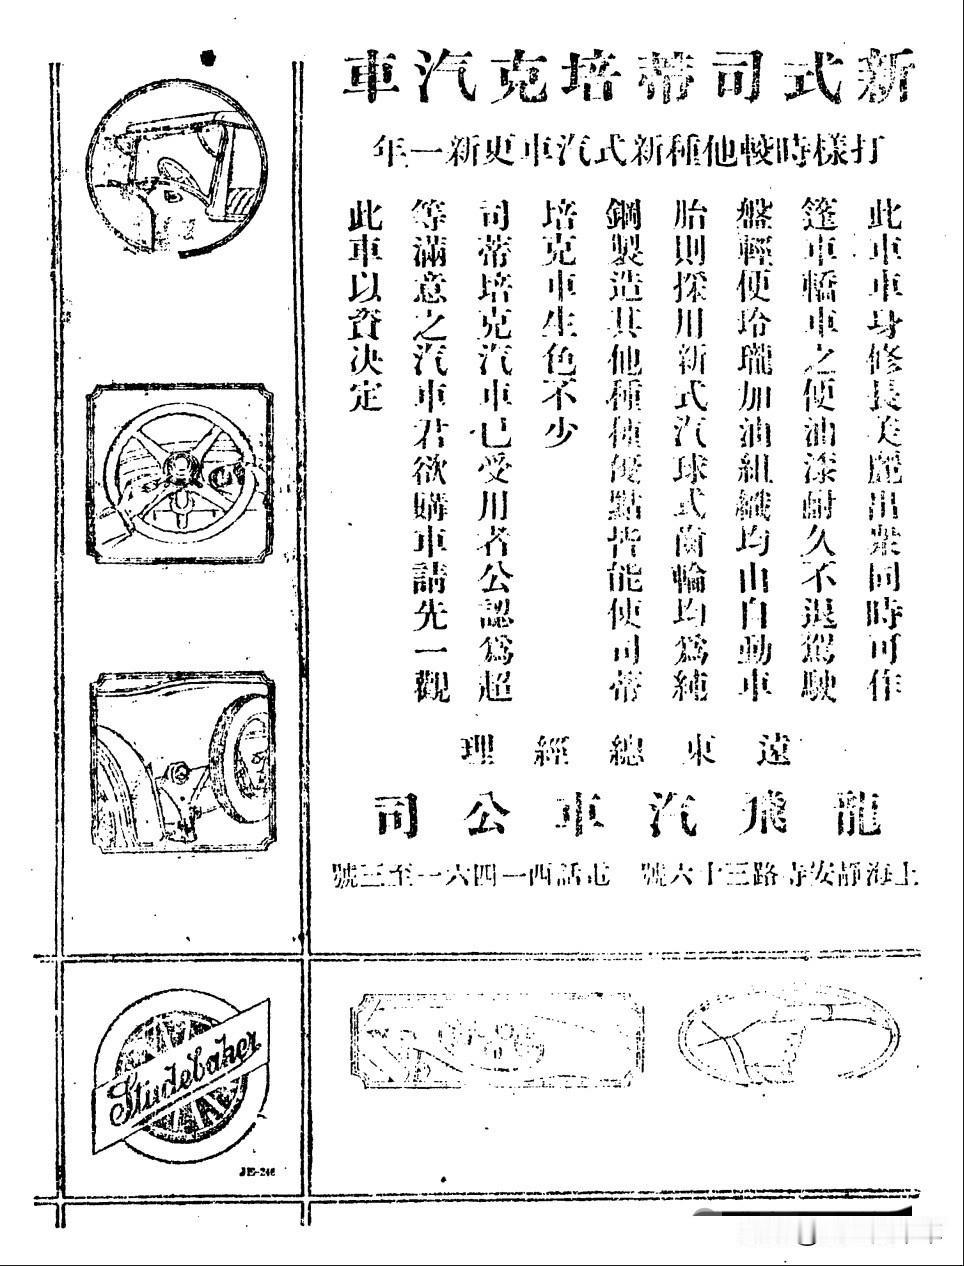 新式司蒂培克汽車
打樣時較他種新式汽車更新一年
此車車身修長美麗出衆同時可作
篷車轎車之便油漆耐久不退駕駛
盤輕便玲瓏加油組織均由自動車
胎則採用新式汽球式前輪均爲純
鋼製造其他種種優點皆能使司蒂
培克車生色不少
司蒂培克汽車已受用者公認爲超
等滿意之汽車君欲購車請先一觀
此車以資決定
遠東總經理
龍飛汽車公司
上海靜安寺路三十六號 電話西一四六一至三號
Studebaker
JE-246